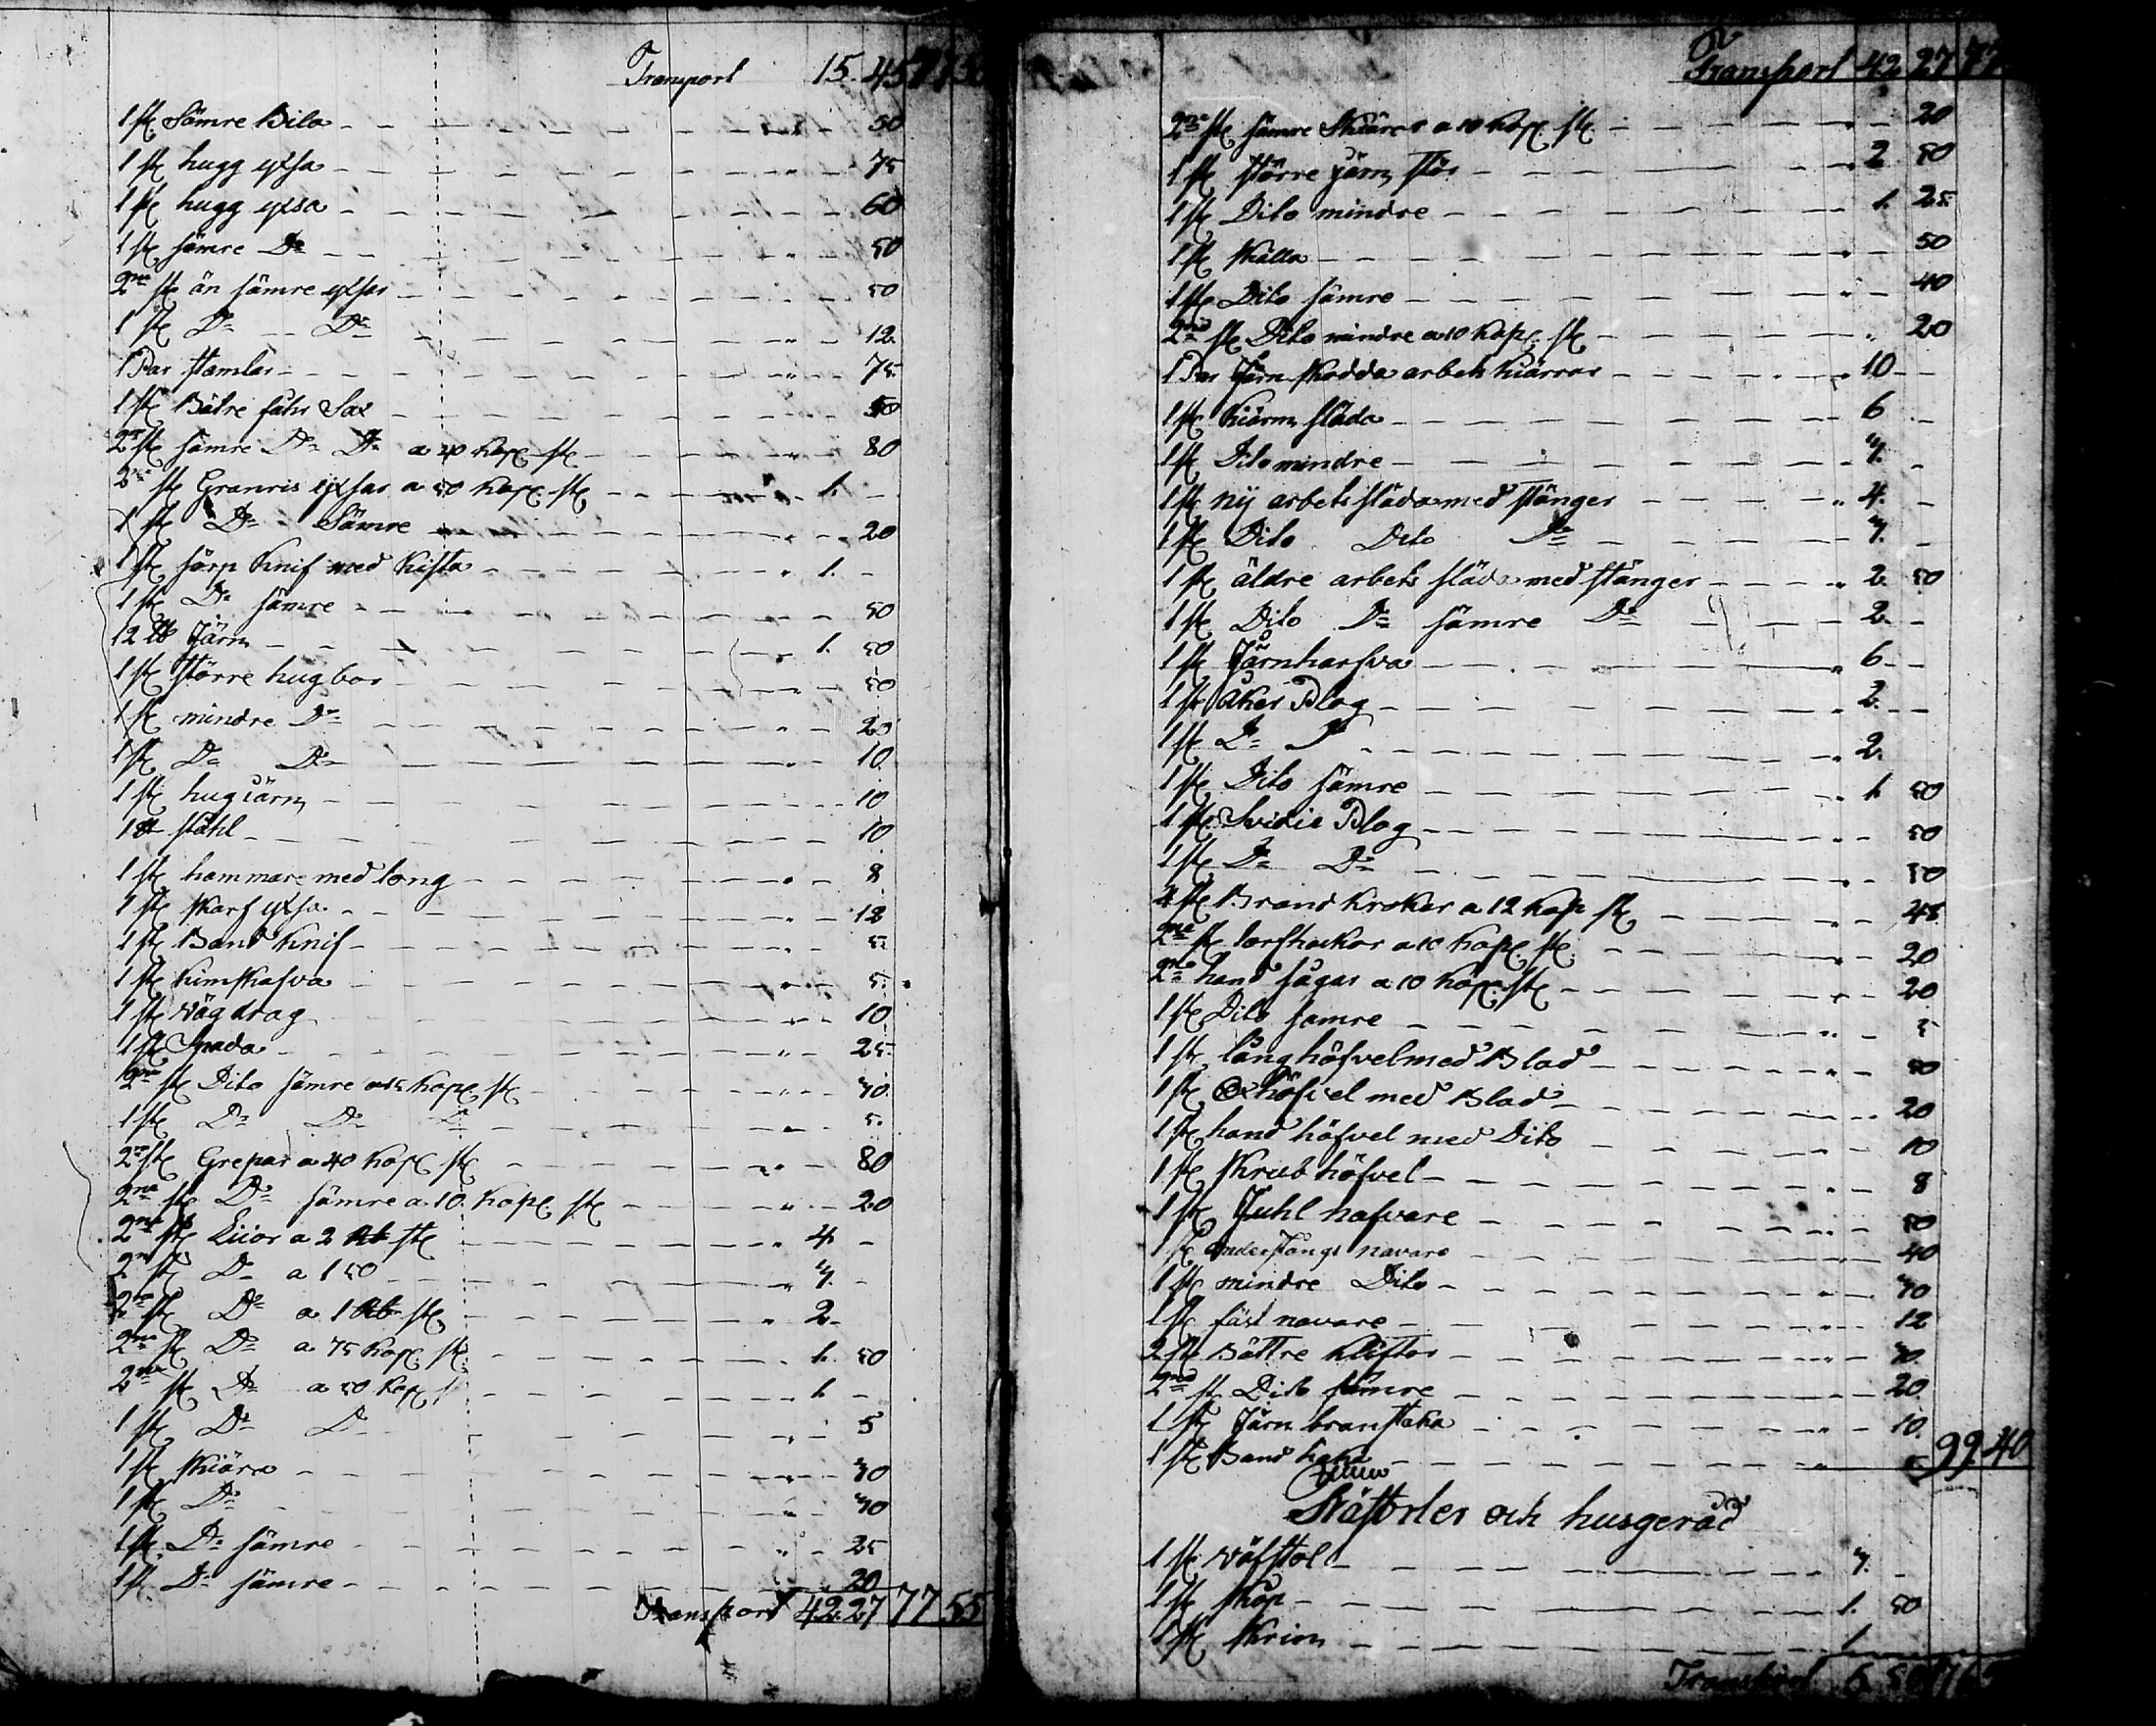 Transport 15. 45
1 st. Sämre Bila 50
1 st. hugg yxsa 75
1 st. hugg yxsa 60
1 st. sämre Do 50
2ne st. än sämre yxsar 50
1 st. Do Do 12.
1 Par stamlar 75.
1 st. Bätre fåhr Sax 50
2ne st. sämre Do Do a 40 Kopc. st. 80
2ne st. Granris yxsar a 50 Kopc. st. 1. -
1 st. Do Sämre 20
1 st. sörp Knif med Kista 1. -
1 st. Do sämre 50
12 lb Järn 1. 50
1 st. större hugbor 50
1 st. mindre Do 20
1 st. Do Do 10.
1 st. hugiärn 10
1 lb ståhl 10
1 st. hammare med tong 8
1 st. skarf yxsa 12
1 st. Band Knif 5.
1 st. Kimskafva 5.
1 st. vägdrag 10
1 st. Spada 25.
2ne st. Dito sämre a 15 Kopc. st. 30.
1 st. Do Do Do 5.
2ne st. Grepar a 40 Kopc. st. 80
2ne st. Do sämre a 10. Kopc. st. 20
2ne st. Liior a 2 Rb st. 4. -
2ne st. Do a 1 50 3. -
2ne st. Do a 1 Rb st. 2 -
2ne st. Do a 75 Kopc. st. 1. 50
2ne st. Do a 50 Kopc. 1 -
1 st. Do D 5
1 st. skiära 30
1 st. Do 30
1 st. Do sämre 25
1 st. Do sämre 20
Transport 42.27 77 55
Transport 42 27 77
2ne st. sämre Skiäror a 10 Kopc. st. 20
1 st. större järn stör 2 50
1 st. Dito mindre 1. 25
1 st. skälla 50
1 st. Dito sämre 40
2ne st. Dito mindre a 10 Kopc. st. 20
1 Par Järn skodda arbets kiärror 10 -
1 st. Kiärn släda 6 -
1 st. Dito mindre 3. -
1 st. nÿ arbets släda med stänger 4. -
1 st. Dito Dito Do 3. -
1 st. äldre arbets släda med stänger 2 50
1 st. Dito Do sämre Do 2. -
1 st. Järnharfva 6 -
1 st. åker Plog 2. -
1 st. Do D 2.
1 st. Dito sämre 1 50
1 st. Svidie Plog 50
1 st. Do Do 50
4 st. Brand Krokar a 12 Kop st. 48
2ne st. torfhackor a 10 Kopc. st. 20
2ne hand sågar a 10 Kopc. st. 20
1 st. Dito samre 5
1 st. långhöfvel med Blad 50
1 st. höfvel med Blad 20
1 st. hand höfvel med Dito 10
1 st. Skrub höfvel 8
1 st. Juhl nafvare 50
1 st. understångs navare 40
1 st. mindre Dito 30
1 st. fäst navare 12
2 st. Bättre Kliftor 30.
2ne st. Dito sämre 20.
1 st. Järn branstaka 10.
1 st. Band haka 5 99 40
och husgeråd
1 st. väfstol 3. -
1 st. skåp 1. 50
1 st. skrin 1
Transport 5 50